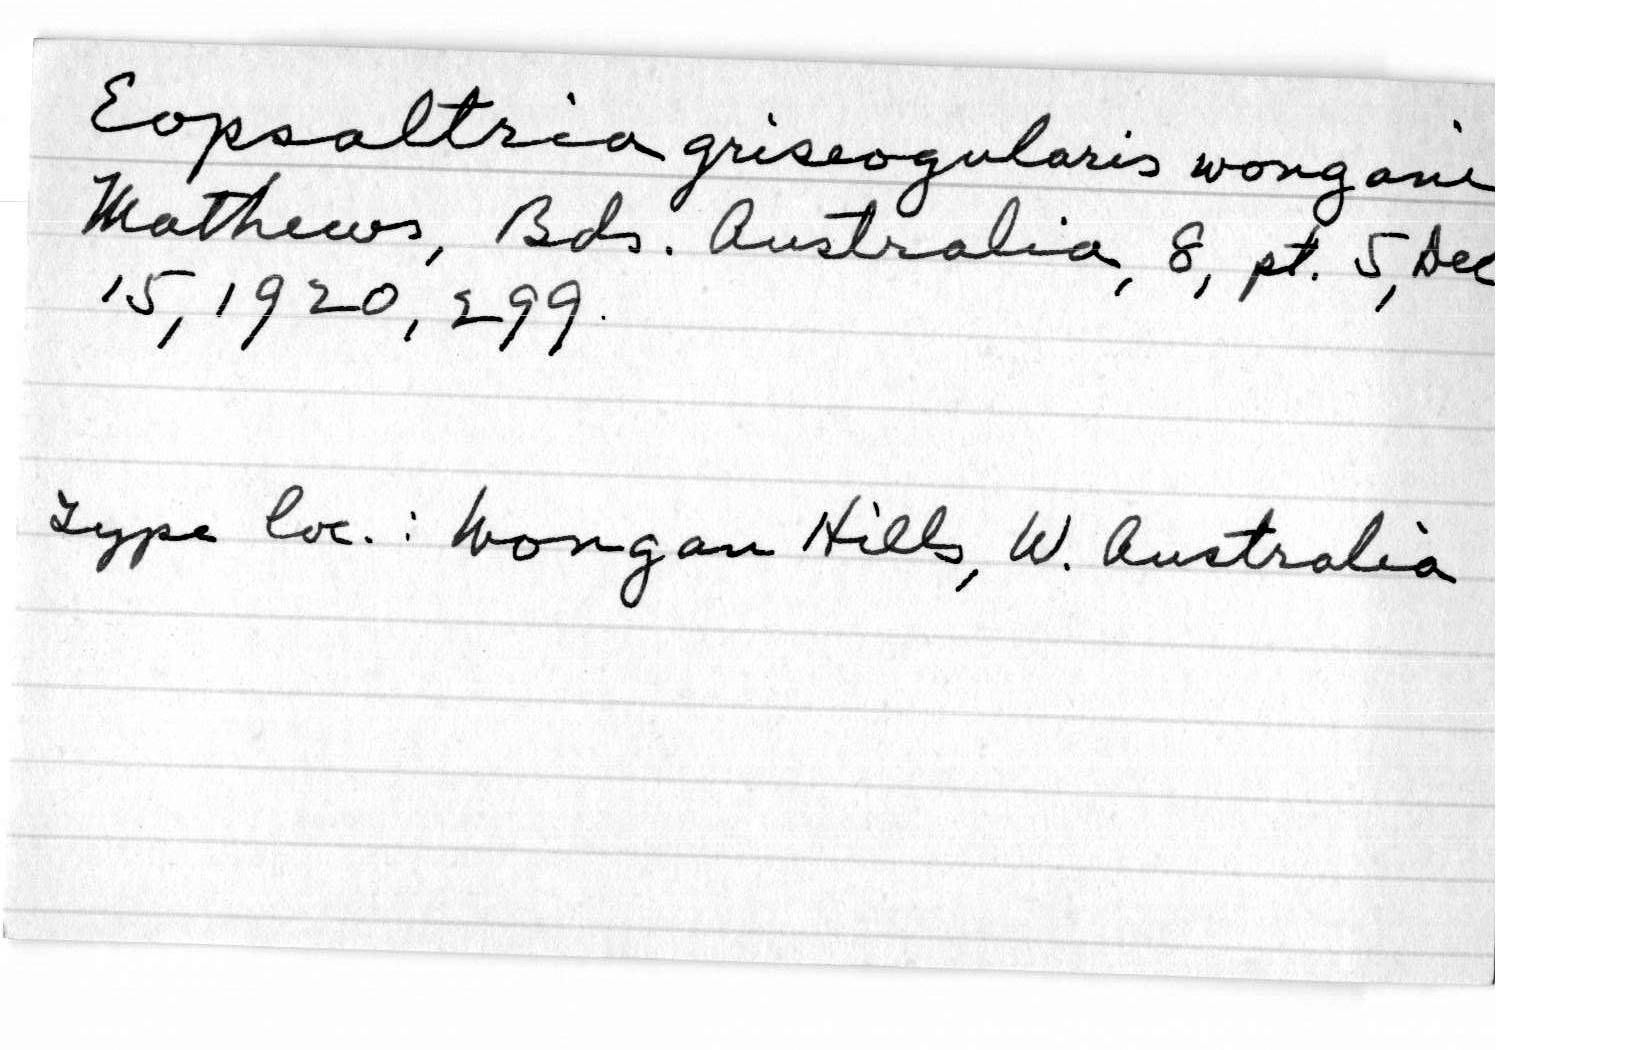 Eopsaltria griseogularis wongani
Mathews, Bds. Australia, 8, pt. 5, Dec
15, 1920, 299.
Type loc.: Wongan Hills, W. Australia